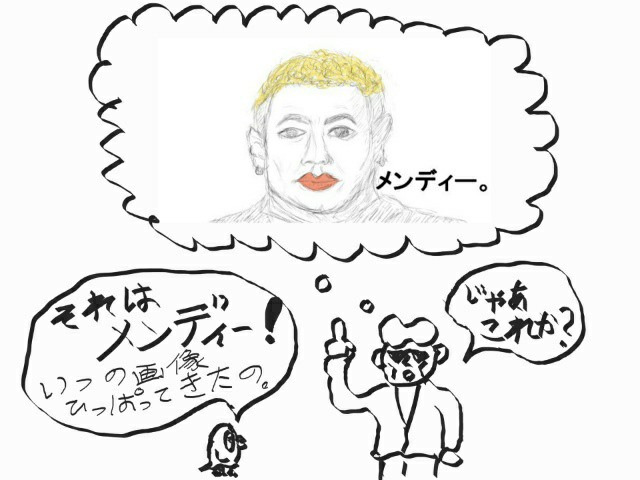 メンディー。
じゃあ
これか?
それは
メンディー!
いつの画像
ひっぱってきたの。